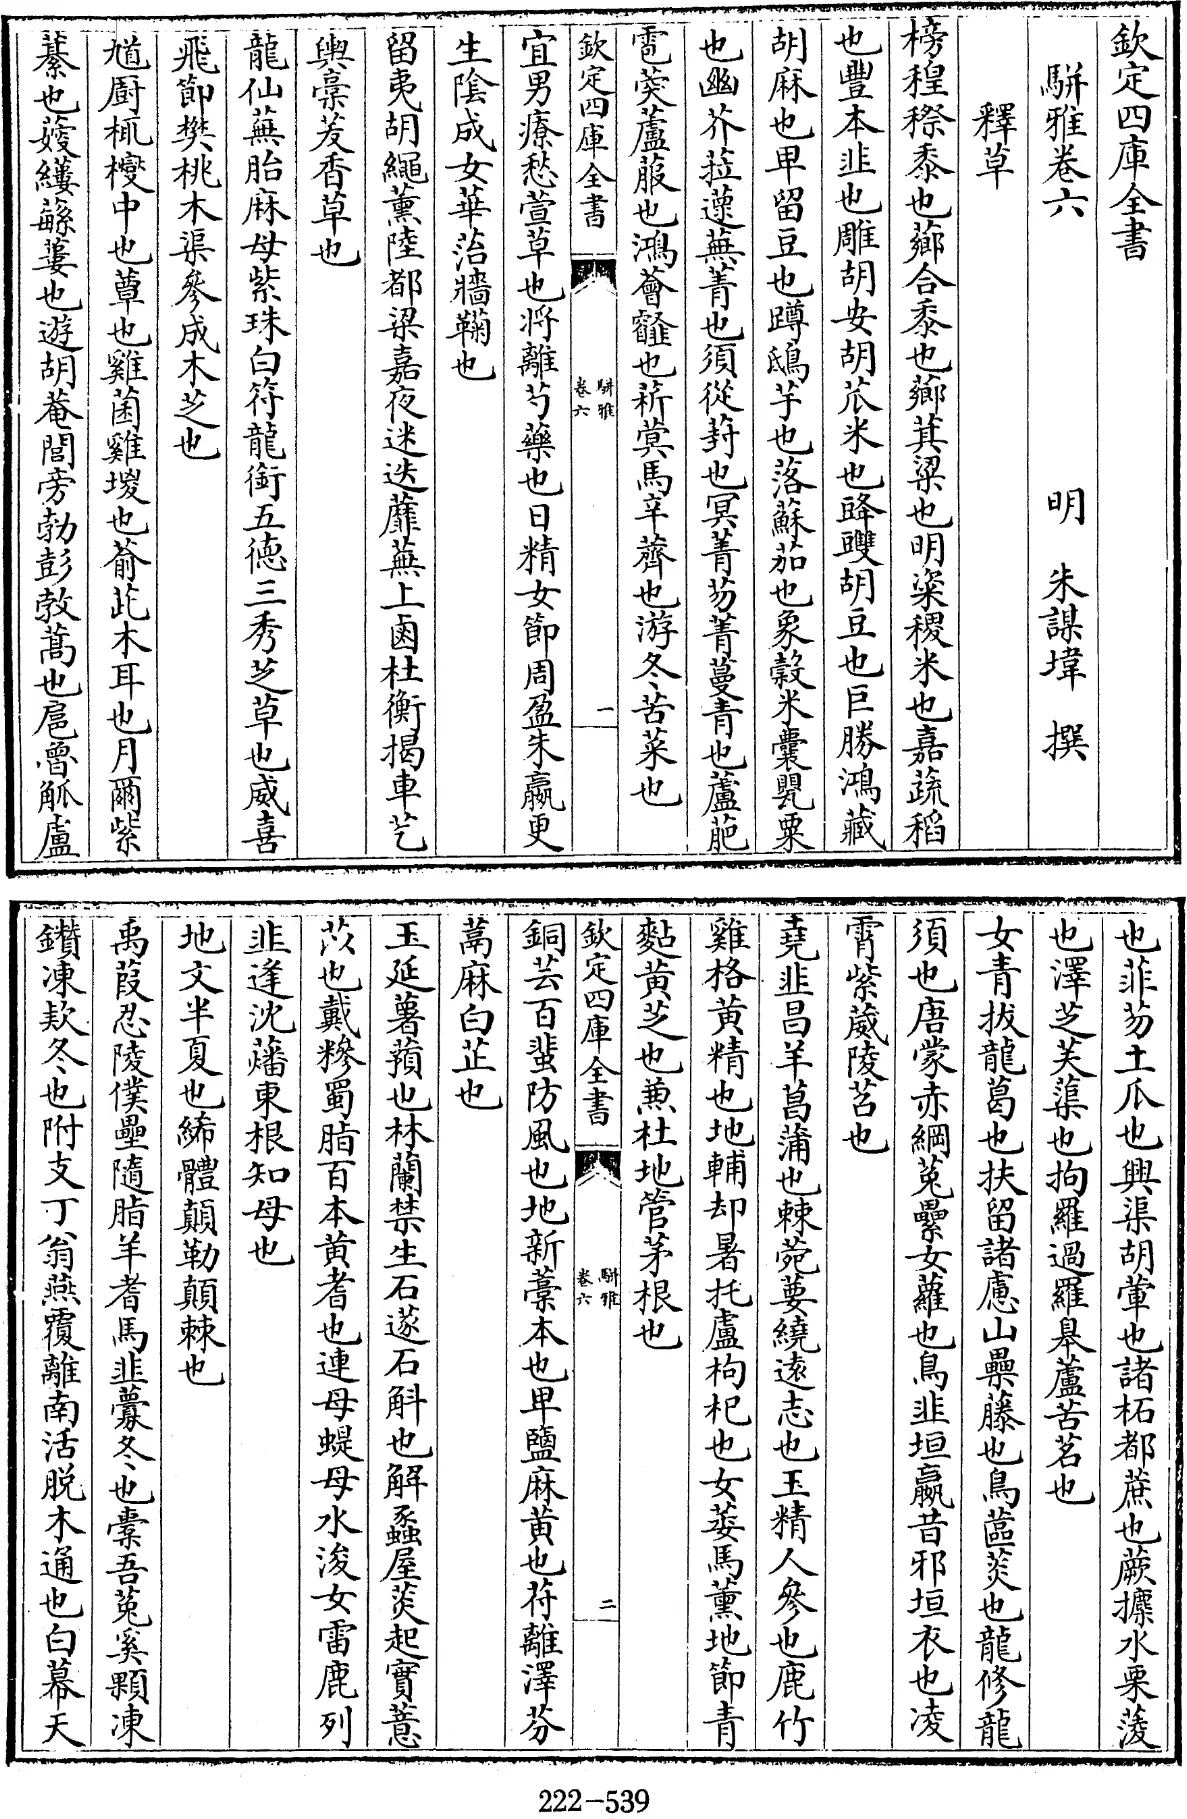 欽定四庫全書
駢雅卷六
明 朱謀㙔 撰
釋草
榜䅣穄黍也薌合黍也薌萁粱也明粢稷米也嘉蔬稻
也豐本韭也雕胡安胡苽米也䜶䝄胡豆也巨勝鴻藏
胡麻也卑留豆也蹲鴟芋也落蘇茄也象穀米囊罌粟
也幽芥菈蘧蕪菁也須從葑也冥菁芴菁蔓青也蘆萉
雹葖蘆菔也鴻薈䪥也菥蓂馬辛薺也游冬苦菜也
欽定四庫全書
駢雅
卷六
一
宜男療愁萱草也将離芍藥也日精女節周盈朱嬴更
生陰成女華治牆鞠也
留夷胡繩薰陸都梁嘉夜迷迭蘼蕪上鹵杜衡揭車艺
輿槀茇香草也
龍仙蕪胎麻母紫珠白符龍銜五德三秀芝草也威喜
飛節樊桃木渠參成木芝也
馗厨柧㮕中也蕈也雞菌雞㙡也蕍茈木耳也月爾紫
蘩也薞縷蘩蔞也遊胡菴閭旁勃彭敦蒿也扈魯觚盧
也菲芴土瓜也興渠胡葷也諸柘都蔗也蕨攈水栗蔆
也澤芝芙蕖也拘羅過羅臯蘆苦茗也
女青拔龍葛也扶留諸慮山櫐藤也烏蓲菼也龍修龍
須也唐蒙赤綱菟纍女蘿也烏韭垣嬴昔邪垣衣也凌
霄紫葳陵苕也
堯韭昌羊菖蒲也棘菀葽繞遠志也玉精人參也鹿竹
雞格黄精也地輔却暑托盧枸杞也女萎馬薰地節青
黏黄芝也兼杜地管茅根也
欽定四庫全書
駢雅
卷六
二
銅芸百蜚防風也地新藁本也卑鹽麻黄也苻離澤芬
蒚麻白芷也
玉延薯蕷也林蘭禁生石遂石斛也解蠡屋菼起實薏
苡也戴糝蜀脂百本黄耆也連母蝭母水浚女雷鹿列
韭逢沈藩東根知母也
地文半夏也絺體顛勒顛棘也
禹葭忍陵僕壘隨脂羊耆馬韭虋冬也槖吾菟奚顆凍
鑽凍欵冬也附支丁翁燕覆離南活脱木通也白幕天
222-539